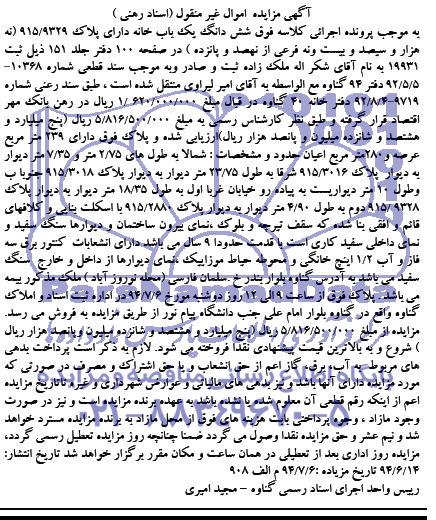 آگهی مزایده اموال غیر منقول (اسناد رهنی )
به موجب پرونده اجرائی کلاسه فوق شش دانگ یک باب خانه دارای پلاک ۹۱۵/۹۳۲۹ (نه
هزار و سیصد و بیست ونه فرعی از نهصد و پانزده ) در صفحه ۱۰۰ دفتر جلد ۱۵۱ ذیل ثبت
۱۹۹۳۱ به نام آقای شکر اله ملک زاده ثبت و صادر وبه موجب سند قطعی شماره ۱۰۳۶۸-
۹۲/۵/۵ دفتر ۹۴ گناوه مع الواسطه به آقای امیر لیراوی منتقل شده است ، طبق سند رعنی شماره
۹۷۱۹-۹۲/۸/۴ دفتر خانه ۴۰ گناوه در قبال مبلغ ۱/۶۲۰/۰۰۰/۰۰۰ ریال در رهن بانک مهر
اقتصاد قرار گرفته و طبق نظر کارشناس رسمی به مبلغ ۵/۸۱۶/۵۰۰/۰۰۰ ریال (پنج میلیارد و
هشتصد و شانزده میلیون و پانصد هزار ریال)ارزیابی شده و پلاک فوق دارای ۲۳۹ متر مربع
عرصه و۲۸۰متر مربع اعیان حدود و مشخصات : شمالا به طول های ۲/۷۵ متر و ۷/۳۵ متر دیوار
به دیوار پلاک ۹۱۵/۳۰۱۶ شرقا به طول ۲۳/۷۵ متر دیوار به دیوار پلاک ۹۱۵/۳۰۱۸ جنوبا ب
وطول ۱۰ متر دیواریست به پیاده رو خیابان غربا اول به طول ۱۸/۳۵ متر دیوار به دیوار پلاک
۹۱۵/۹۳۲۸ دوم به طول ۴/۹۰ متر دیوار به دیوار پلاک ۹۱۵/۲۸۸۰ با اسکلت بنایی و کلافهای
قائم و افقی بنا شده که سقف تیرچه و بلوک ،نمای بیرون ساختمان و دیوارها سنگ سفید و
نمای داخلی سفید کاری است با قدمت حدودا ۹ سال می باشد دارای انشعابات کنتور برق سه
فاز و آب ۱/۲ اینچ خانگی و محوطه حیاط موزاییک ،نمای دیوارها از داخل و خارج سنگ
سفید می باشد به آدرس گناوه بلوار بندر خ سلمان فارسی (محله نوروز آباد ) ملک مذکور بیمه
می باشد. پلاک فوق از ساعت ۹ الی ۱۲ روز دوشنبه مورخ ۹۴/۷/۶ در اداره ثبت اسناد و املاک
گناوه واقع در گناوه بلوار امام علی جنب دانشگاه پیام نور از طریق مزایده به فروش می رسد.
مزایده از مبلغ ۵/۸۱۶/۵۰۰/۰۰۰ ریال (پنج میلیارد و هشتصد و شانزده میلیون وپانصد هزار ریال
) شروع و به بالاترین قیمت پیشنهادی نقدا فروخته می شود. لازم به ذکر است پرداخت بدهی
های مربوط به آب ،برق، گاز اعم از حق انشعاب و یا حق اشتراک و مصرف در صورتی که
مورد مزایده دارای آنها باشد و نیز بدهی های مالیاتی و عوارض شهرداری و غیره تا تاریخ مزایده
اعم از اینکه رقم قطعی آن معلوم شده یا نشده باشد به عهده برنده مزایده است و نیز در صورت
وجود مازاد ، وجوه پرداختی بابت هزینه های فوق از محل مازاد به برنده مزایده مسترد خواهد
شد و نیم عشر و حق مزایده نقدا وصول می گردد ضمنا چنانچه روز مزایده تعطیل رسمی گردد،
مزایده روز اداری بعد از تعطیلی در همان ساعت و مکان مقرر برگزار خواهد شد تاریخ انتشار:
۹۴/۶/۱۴ تاریخ مزیاده :۹۴/۷/۶ م الف ۹۰۸
رییس واحد اجرای اسناد رسمی گناوه – مجید امیری
۰۲۱-۸۸۳۴۹۶۷۰-۵